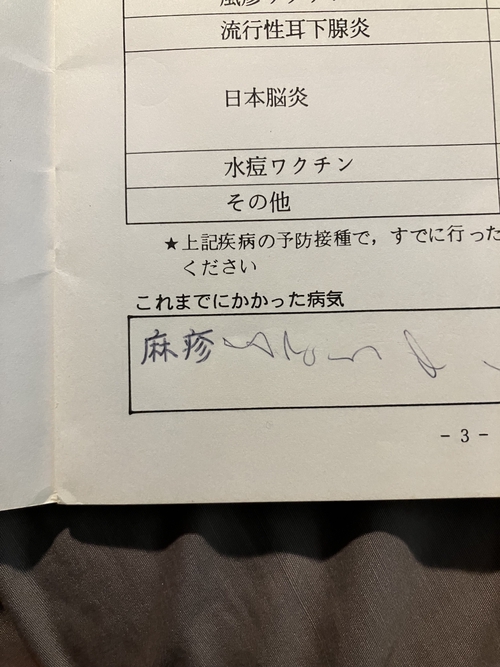 流行性耳下腺炎
日本脳炎
水痘ワクチン
その他
★上記疾病の予防接種で，すでに行った
ください
これまでにかかった病気
麻疹
- 3 -